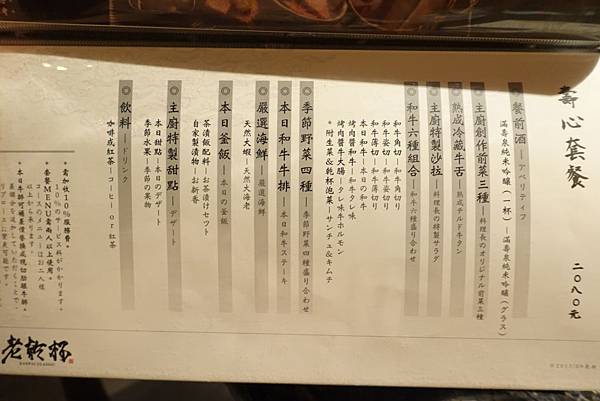 壽心套餐 二〇八〇元
◎餐前酒—アペリティフ
滿壽泉純米吟釀（一杯）—滿壽泉純米吟醸（グラス）
◎主廚創作前菜三種—料理長のオリジナル前菜三種
◎熟成冷藏牛舌—熟成チルド牛タン
◎主廚特製沙拉—料理長の特製サラダ
◎和牛六種組合—和牛六種盛り合わせ
和牛角切—和牛角切り
和牛姿切—和牛姿切り
和牛薄切—和牛薄切り
本日和牛—本日の和牛
烤肉醬和牛—和牛タレ味
烤肉醬牛大腸—タレ味牛ホルモン
*附生菜&乾杯泡菜—サンチュ&キムチ
◎季節野菜四種—季節野菜四種盛り合わせ
◎本日和牛牛排—本日和牛ステーキ
◎嚴選海鮮—嚴選海鮮
天然大蝦—天然大海老
◎本日釜飯—本日の釜飯
茶漬飯配料—お茶漬けセット
自家製漬物—お新香
◎主廚特製甜點—デザート
本日甜點—本日のデザート
季節水果—季節の果物
◎飲料—ドリンク
咖啡或紅茶—コーヒー or 紅茶
*需加收10%服務費。
10%のサービス料がかかります。
*套餐MENU需兩人以上使用。
コースのメニューはお二人様
以上から承ります。
老乾杯
KANPAI CLASSIC